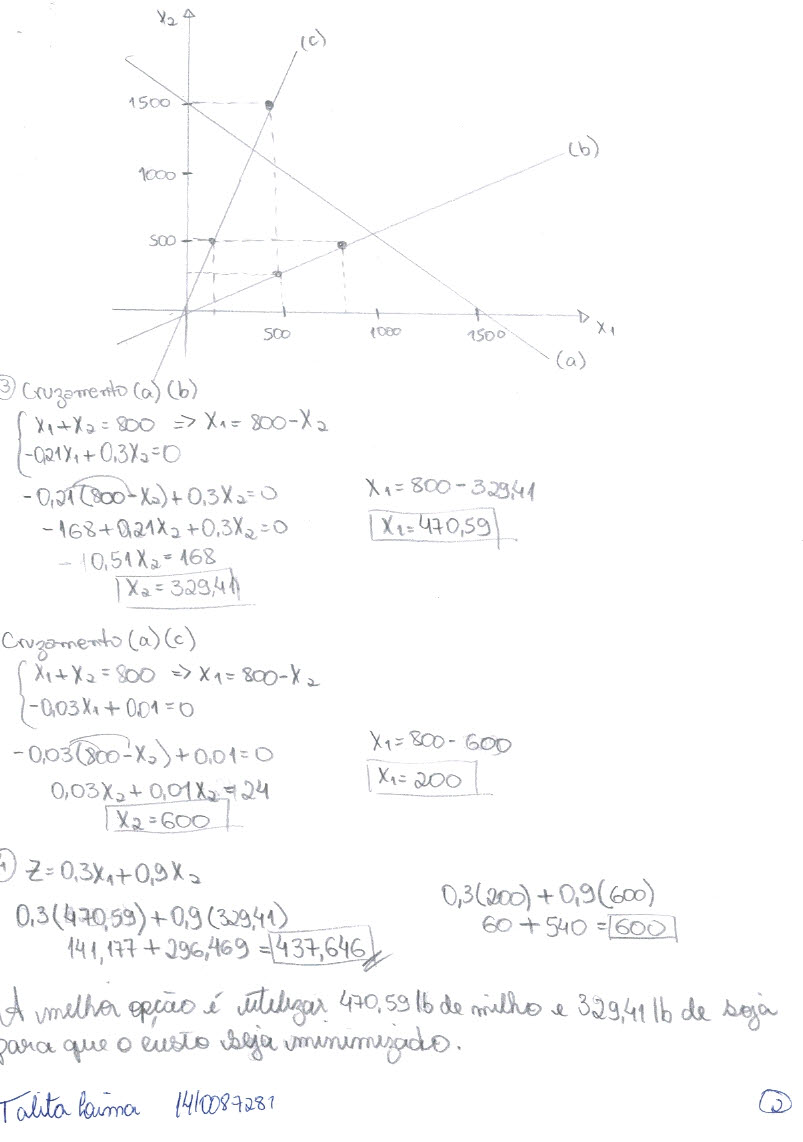 X₂
(c)
1500
(b)
1000
500
500
1000
1500
X₁
(a)
③ Cruzamento (a) (b)
X₁+X₂=800 => X₁=800-X₂
-0,21X₁+0,3X₂=0
-0,21(800-X₂)+0,3X₂=0
-168+0,21X₂+0,3X₂=0
0,51X₂=168
X₂=329,41
X₁=800-329,41
X₁=470,59
Cruzamento (a) (c)
X₁+X₂=800 => X₁=800-X₂
-0,03X₁+0,01=0
-0,03(800-X₂)+0,01=0
0,03X₂+0,01X₂=24
X₂=600
X₁=800-600
X₁=200
Z=0,3X₁+0,9X₂
0,3(470,59)+0,9(329,41)
141,177+296,469=437,646
0,3(200)+0,9(600)
60+540=600
A melhor opção é utilizar 470,59 lb de milho e 329,41 lb de soja
para que o custo seja minimizado.
Talita 1410087281
②